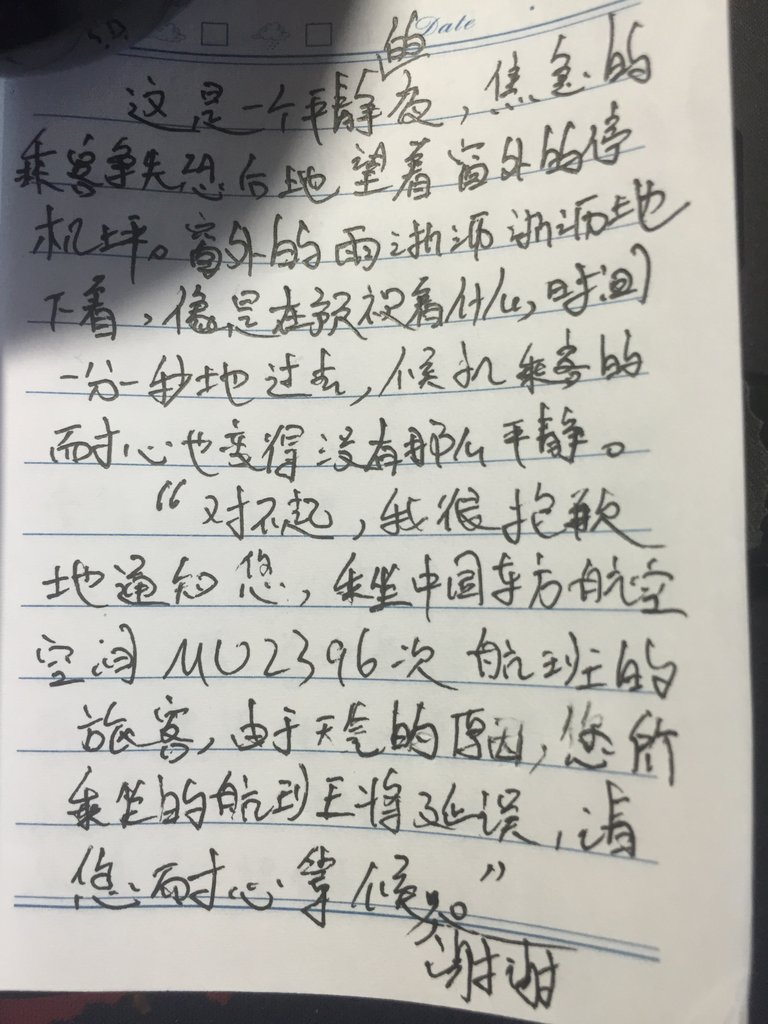 Date
这是一个平静的夜，焦急的
乘客争先恐后地望着窗外的停
机坪。窗外的雨淅沥淅沥地
下着，像是在预祝着什么，时间
一分一秒地过去，候机乘客的
耐心也变得没有那么平静。
“对不起，我很抱歉
地通知您，乘坐中国东方航空
空间MU2396次航班的
旅客，由于天气的原因，您所
乘坐的航班将延误，请
您耐心等候。”
谢谢